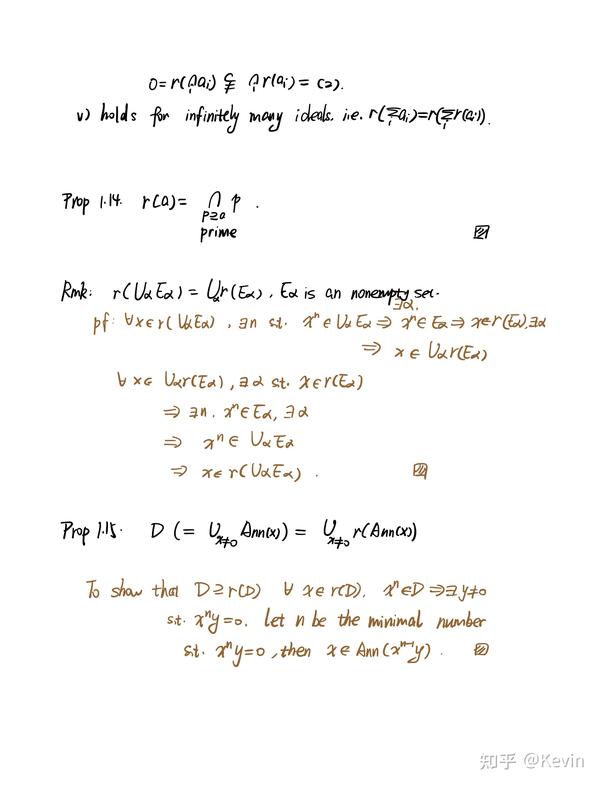 0=r(∩ᵢaᵢ) ⊊ ∩ᵢ r(aᵢ) = (2).
v) holds for infinitely many ideals. i.e. r(Σᵢaᵢ)=r(Σᵢr(aᵢ)).
Prop 1.14. r(a)= ∩ p .
p⊇a
prime
Rmk: r(∪αEα) = ∪αr(Eα), Eα is an nonempty set.
pf: ∀x∈r(∪αEα), ∃n st. xⁿ∈∪αEα ⇒ xⁿ∈Eα, ∃α, ⇒ x∈r(Eα),∃α
⇒ x∈∪αr(Eα)
∀x∈ ∪αr(Eα), ∃α st. x∈r(Eα)
⇒ ∃n. xⁿ∈Eα, ∃α
⇒ xⁿ∈ ∪αEα
⇒ x∈r(∪αEα) .
Prop 1.15. D (= ∪x≠0 Ann(x)) = ∪x≠0 r(Ann(x))
To show that D⊇r(D) ∀x∈r(D), xⁿ∈D ⇒∃y≠0
st. xⁿy=0. let n be the minimal number
st. xⁿy=0, then x∈Ann(xⁿ⁻¹y) .
知乎 @Kevin